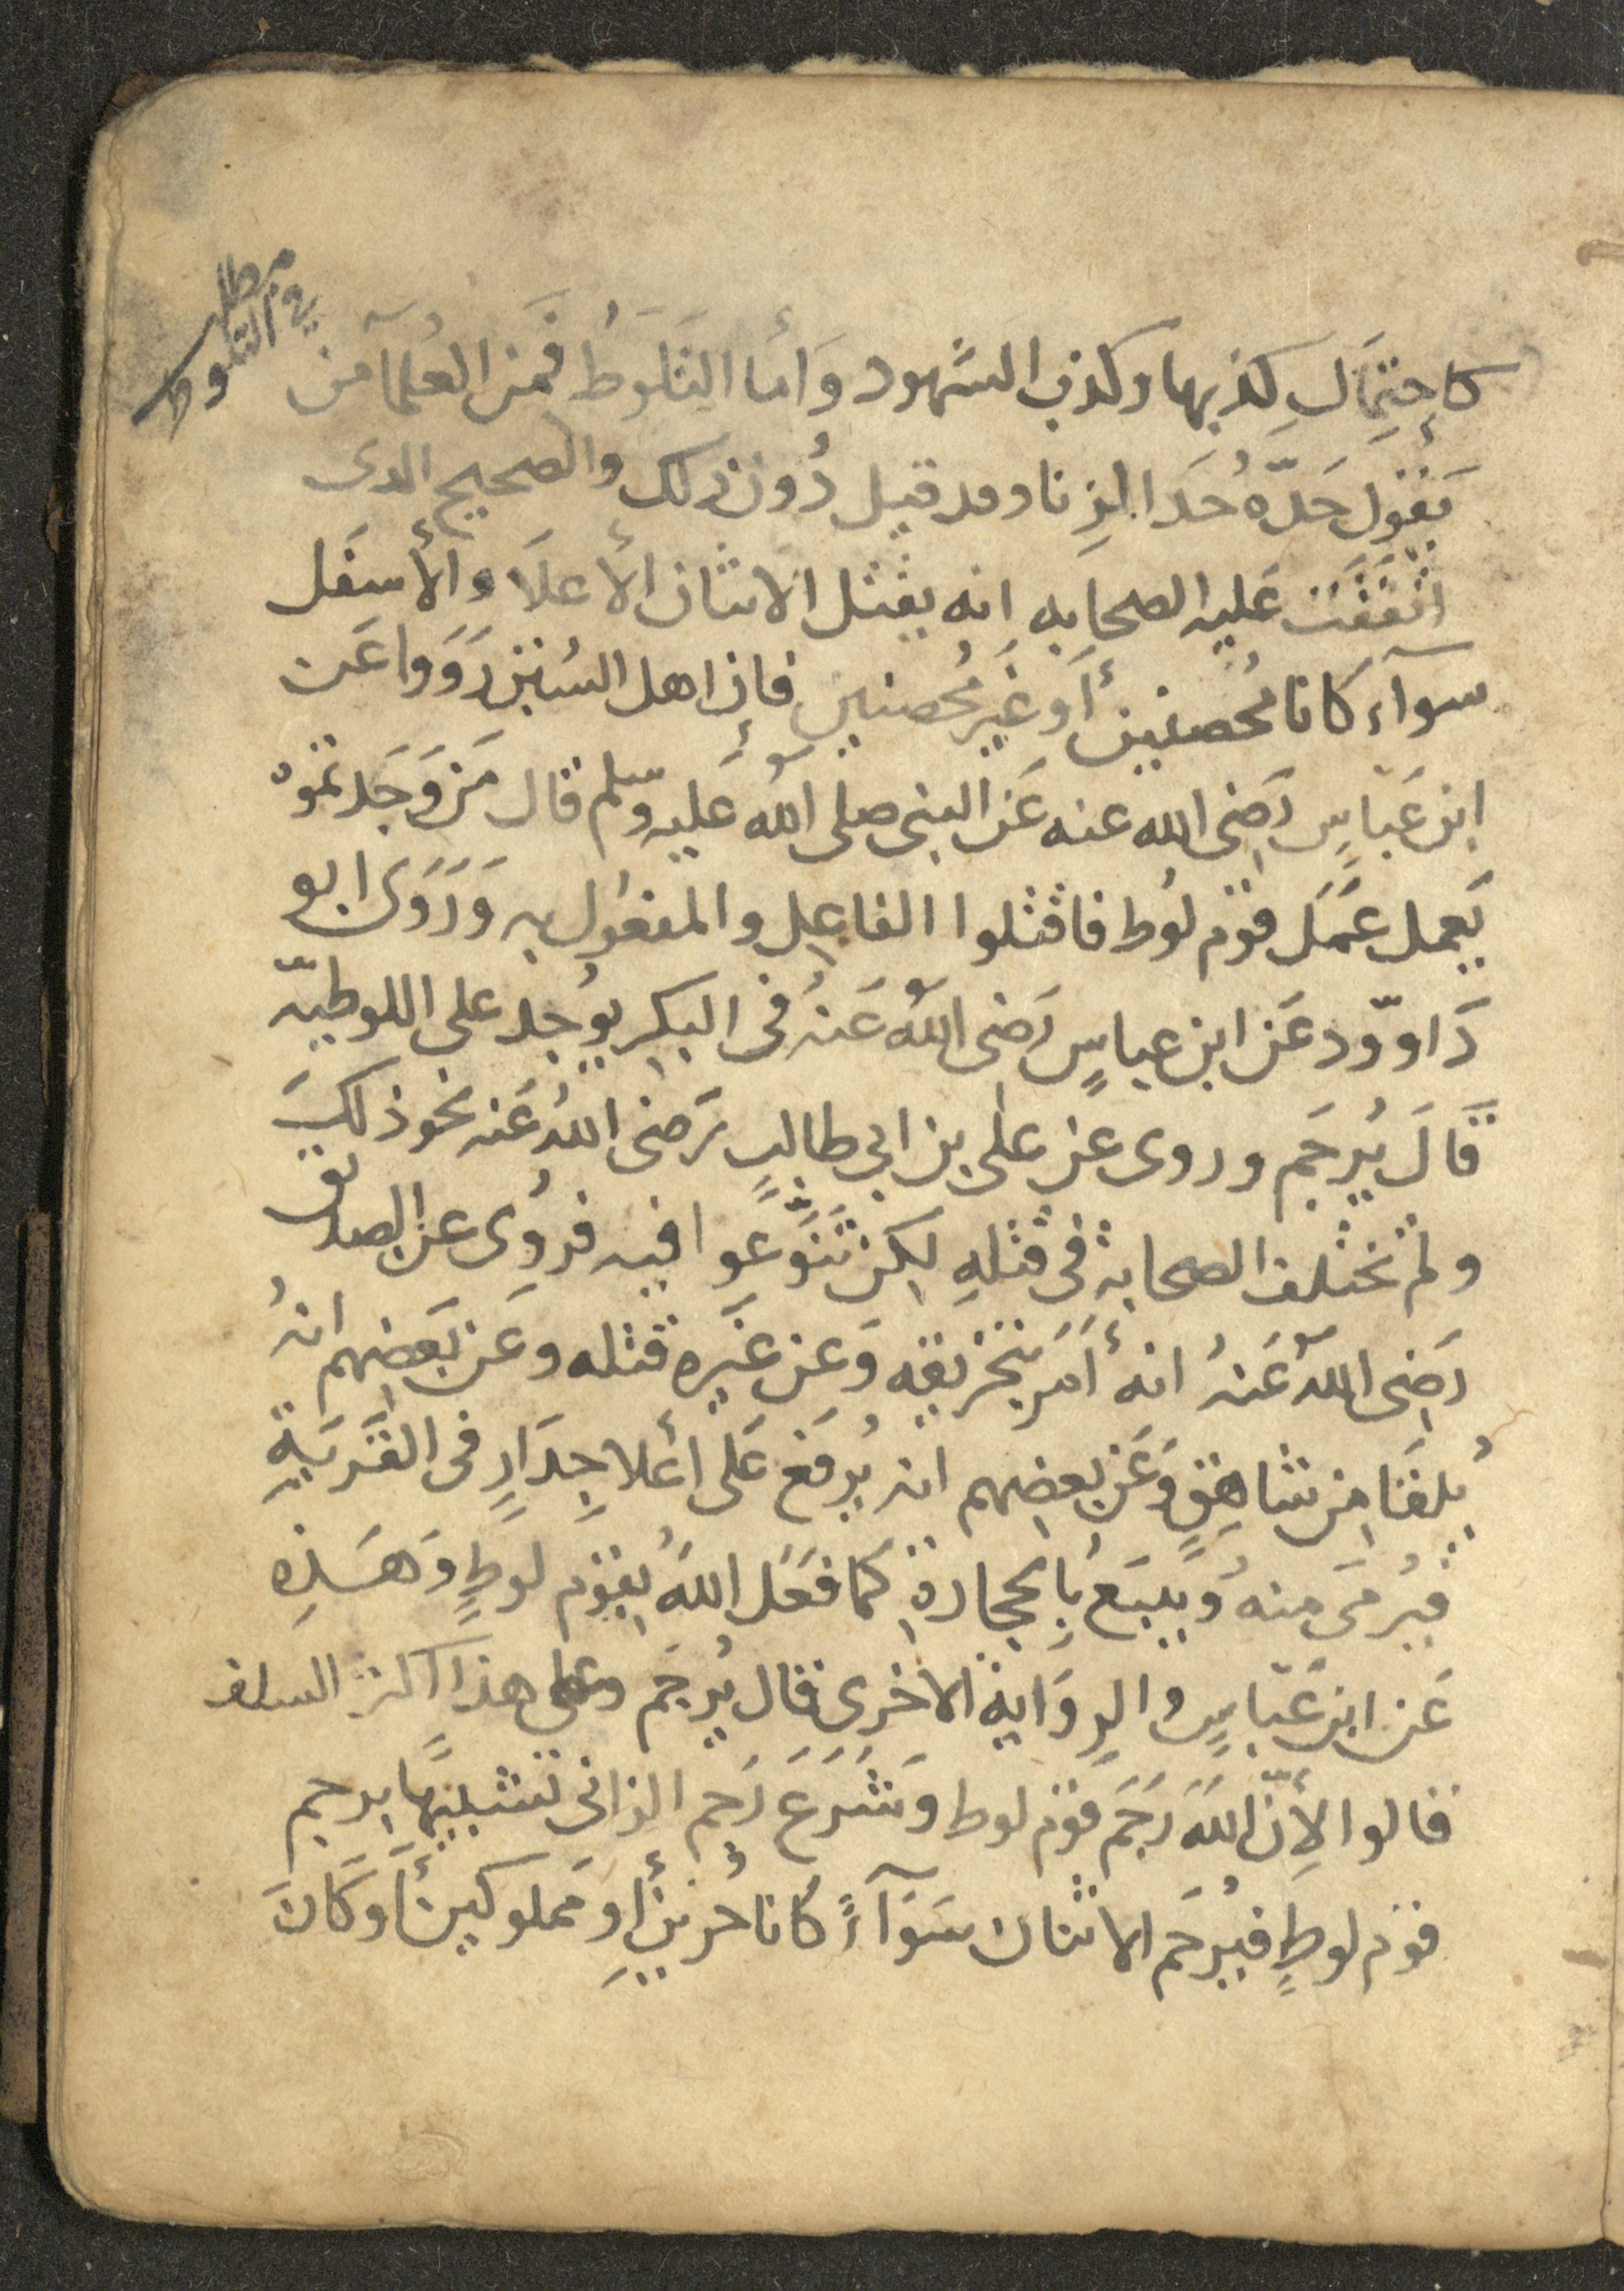 مطلب
في التلوط
كاحتِمَالِ كذبها وكذب الشهود وَأما التَلَوطُ فمن العُلمآ من
يقول حَدّه حُدَ الزِنا وقد قيل دُون ذلك والصحيح الذى
اتفقَت عليه الصحابه انه يقتل الاثنان الأعلَا والأسفل
سوآء كانا مُحصنين أو غيرمُحصنين فإن اهل السُنن رَوَوا عَن
ابن عَبّاسٍ رَضِى الله عنه عَن النبى صلى الله عَليه وسلم قال مَن وَجَدتموه
يَعمل عَمَل قوم لوُط فاقتلوا الفاعِل والمفعُول به وَرَوَى ابو
دَاوّود عَن ابن عباسٍ رَضى الله عَنهُ فى البكِر يوُجد على اللوطيّه
قَالَ يُرجَم وروى عن على بن ابي طالبٍ رَضى اللهُ عَنه نحوذلكَ
ولم تختلف الصحابة فى قتلهِ لكِن تَنَوَّعوا فيه فروُى عن الصديق
رَضِى اللهُ عَنهُ انه أَمَر بتحريقه وَعَن غيَره قتله وعَن بَعضِهم انهُ
يُلقَا مِن شاهقٍ وَعَن بعضِهم انه يُرفَع عَلى أعلا جِدَارٍ فى القَريَةِ
فيُرمَى منهُ ويتبَعُ بالحِجارةِ كما فعَل اللهُ بقوم لوطٍ وَهَذِه
عَن ابن عَبّاسٍ والرِوَاية الاخرى قال يُرجَم وعلى هذا اكثر السلف
قالوا لأنّ اللهَ رَجَمَ قوم لوط وَشَرَعَ رَجم الزانى تشبيهًا برجم
قوم لوطٍ فيُرجَم الاثنان سَوَآءً كانا حُرينِ أو مَملوكين أَوكَانَ